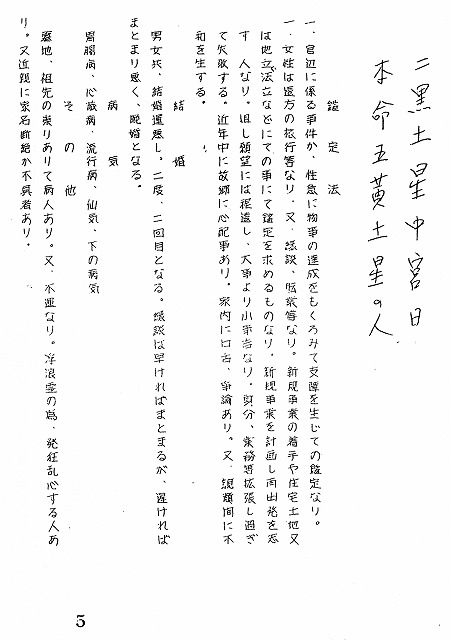 二黒土星中宮日
本命五黄土星の人
鑑定法
一、官辺に係る事件か、性急に物事の達成をもくろみて支障を生じての鑑定なり。
一、女性は遠方の旅行等なり、又、縁談、転業等なり。新規事業の着手や住宅土地又
は地立ぽ立などにての事にて鑑定を求めるものなり。新規事業を計画し再出発を志
す 人なり。但し願望には程遠し、大事より小事吉なり。身分、業務等拡張し過ぎ
て失敗する。近年中に故郷に心配事あり。家内に口舌、争論あり。又、親類間に不
和を生ずる。
結婚
男女共、結婚運悪し。二度、二回目となる。縁談は早ければまとまるが、遅ければ
まとまり悪く、晩婚となる。
病気
胃腸病、心臓病、流行病、仙気、下の病気
その他
墓地、祖先の祟りありて病人あり。又、不運なり。浮浪霊の為、発狂乱心する人あ
り。又近親に家名断絶か不具者あり。
5